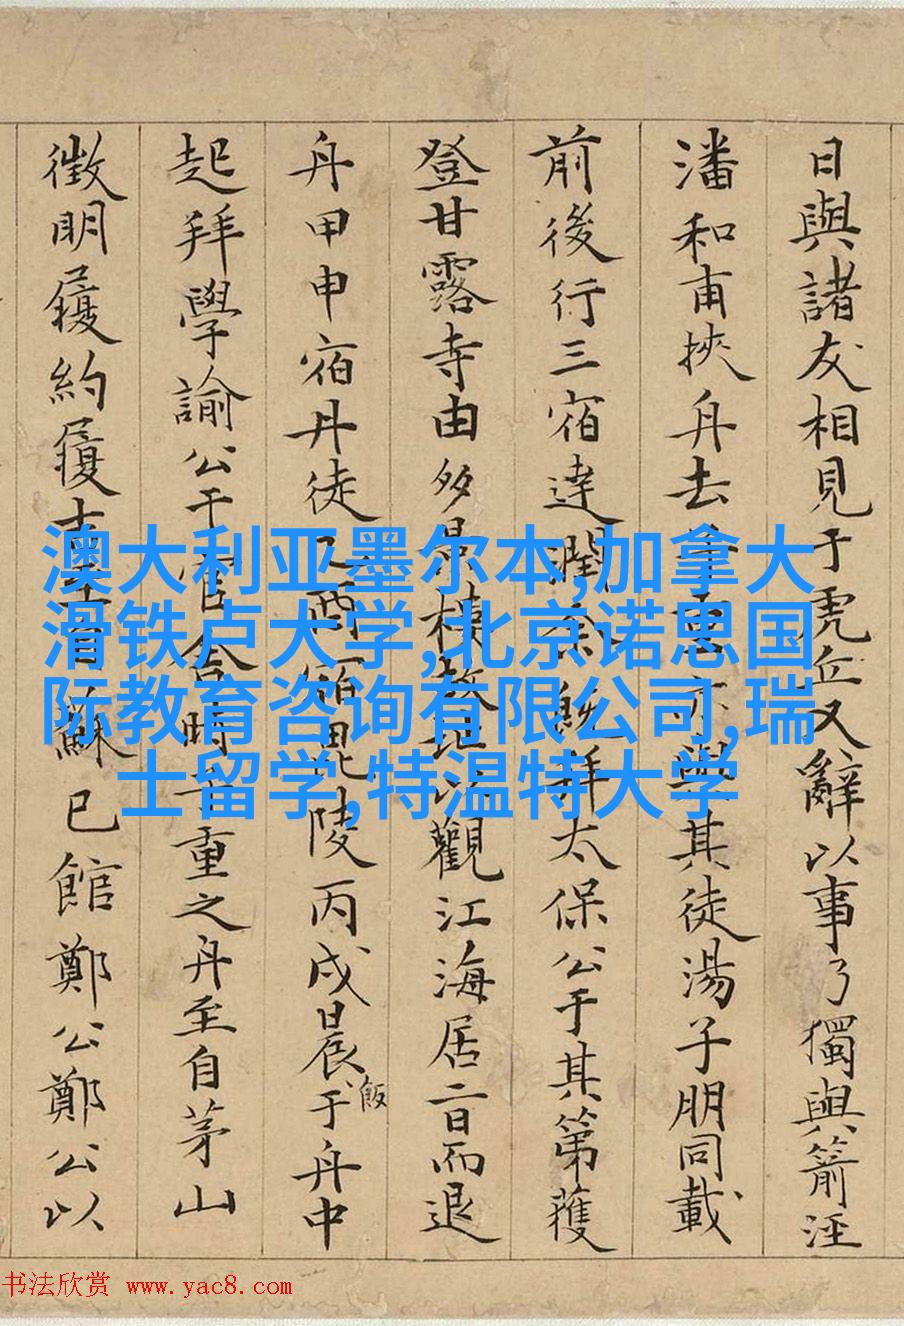 日與諸友相見于虎丘又辭以事乃獨與箭涇
潘和甫挾舟去亦與其徒湯子朋同載
前後行三宿達潤余拜太保公于其第獲
登甘露寺由多景樓以觀江海居二日而退
舟甲申宿丹徒乙酉宿毘陵丙戌晨飯于舟中
起拜學諭公于官舍時重之舟至自茅山
徵明履約履吉自蘇已館鄭公鄭公以
澳大利亚墨尔本,加拿大
滑铁卢大学,北京诺思国
际教育咨询有限公司,瑞
士留学,特温特大学
书法欣赏 www.yac8.com